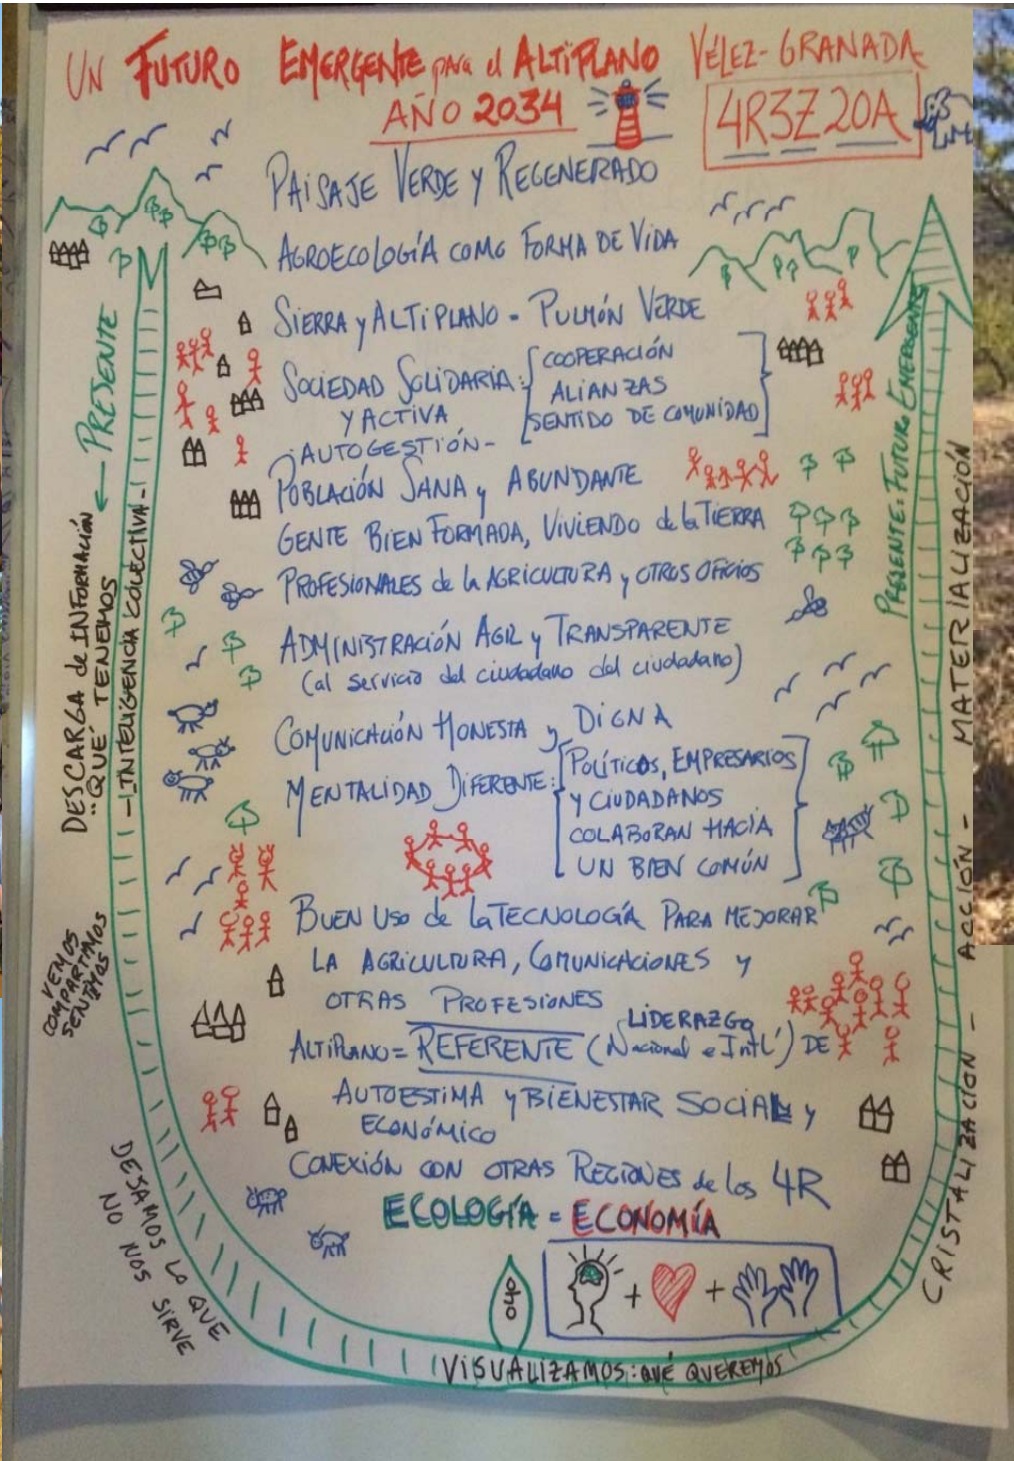 UN FUTURO EMERGENTE para el ALTIPLANO VÉLEZ-GRANADA
AÑO 2034
4R3Z20A
PAISAJE VERDE Y REGENERADO
AGROECOLOGÍA COMO FORMA DE VIDA
SIERRA y ALTIPLANO = PULMÓN VERDE
SOCIEDAD SOLIDARIA:
Y ACTIVA
COOPERACIÓN
ALIANZAS
SENTIDO DE COMUNIDAD
- AUTOGESTIÓN -
POBLACIÓN SANA y ABUNDANTE
GENTE BIEN FORMADA, VIVIENDO de la TIERRA
PROFESIONALES de la AGRICULTURA y OTROS OFICIOS
ADMINISTRACIÓN AGIL y TRANSPARENTE
(al servicio del ciudadano del ciudadano)
COMUNICACIÓN HONESTA y DIGNA
MENTALIDAD DIFERENTE:
POLÍTICOS, EMPRESARIOS
Y CIUDADANOS
COLABORAN HACIA
UN BIEN COMÚN
BUEN USO de la TECNOLOGÍA PARA MEJORAR
LA AGRICULTURA, COMUNICACIONES y
OTRAS PROFESIONES
LIDERAZGO
ALTIPLANO = REFERENTE (Nacional e Intl') DE
AUTOESTIMA y BIENESTAR SOCIAL y
ECONÓMICO
CONEXIÓN CON OTRAS REGIONES de los 4R
ECOLOGÍA = ECONOMÍA
+ +
PRESENTE
DESCARGA de INFORMACIÓN
"QUÉ TENEMOS
- INTELIGENCIA COLECTIVA -
VEMOS
COMPARTIMOS
SENTIMOS
DEJAMOS LO QUE
NO NOS SIRVE
VISUALIZAMOS: QUÉ QUEREMOS
CRISTALIZACIÓN - ACCIÓN - MATERIALIZACIÓN
PRESENTE: FUTURO EMERGENTE